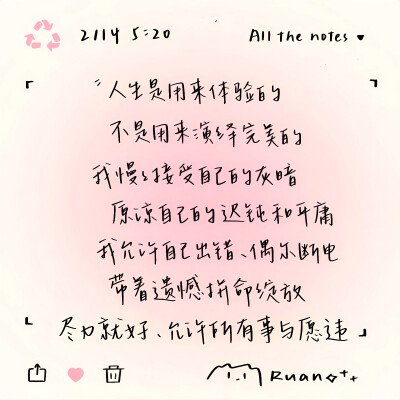 2114 5:20
All the notes ♥
“人生是用来体验的
不是用来演绎完美的
我慢慢接受自己的灰暗
原谅自己的迟钝和平庸
我允许自己出错、偶尔断电
带着遗憾拼命绽放
尽力就好、允许所有事与愿违
Ruano++